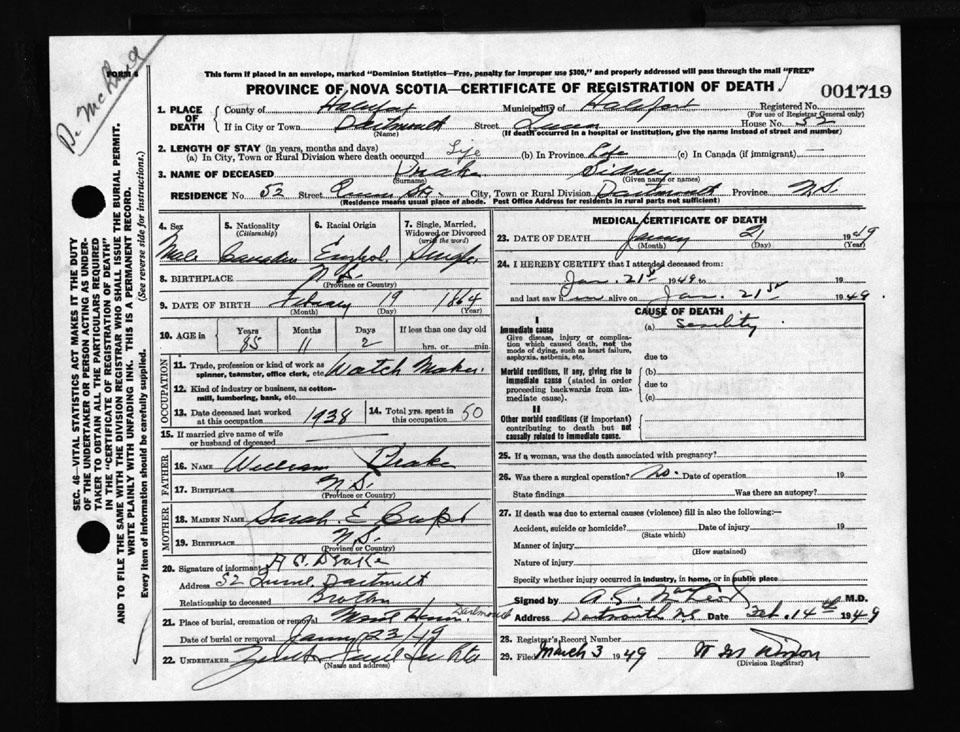 FORM 6
This form if placed in an envelope, marked "Dominion Statistics—Free, penalty for improper use $300," and properly addressed will pass through the mail "FREE"
PROVINCE OF NOVA SCOTIA—CERTIFICATE OF REGISTRATION OF DEATH
001719
1. PLACE OF DEATH
County of Halifax Municipality of Halifax Registered No.
(For use of Registrar General only)
If in City or Town Dartmouth Street Queen House No. 52
(Name) (If death occurred in a hospital or institution, give the name instead of street and number)
2. LENGTH OF STAY (in years, months and days)
(a) In City, Town or Rural Division where death occurred Life (b) In Province Life (c) In Canada (if immigrant) —
3. NAME OF DECEASED Drake Sidney
(Surname) (Given name or names)
RESIDENCE No. 52 Street Queen St. City, Town or Rural Division Dartmouth Province N.S.
(Residence means usual place of abode. Post Office Address for residents in rural parts not sufficient)
4. Sex
Male
5. Nationality
(Citizenship)
Canadian
6. Racial Origin
English
7. Single, Married, Widowed or Divorced
(write the word)
Single
8. BIRTHPLACE N.S.
(Province or Country)
9. DATE OF BIRTH February 19 1864
(Month) (Day) (Year)
10. AGE in Years Months Days If less than one day old
85 11 2 hrs. or min.
OCCUPATION
11. Trade, profession or kind of work as spinner, teamster, office clerk, etc. Watch Maker.
12. Kind of industry or business, as cotton-mill, lumbering, bank, etc.
13. Date deceased last worked at this occupation 1938 14. Total yrs. spent in 50
15. If married give name of wife or husband of deceased
FATHER
16. NAME William Drake
17. BIRTHPLACE N.S.
(Province or Country)
MOTHER
18. MAIDEN NAME Sarah E
19. BIRTHPLACE N.S.
(Province or Country)
20. Signature of informant Drake
Address 52 Dartmouth
Relationship to deceased Brother
21. Place of burial, cremation or removal Dartmouth
Date of burial or removal 23/49
22. UNDERTAKER
(Name and address)
MEDICAL CERTIFICATE OF DEATH
23. DATE OF DEATH 21 1949
(Month) (Day) (Year)
24. I HEREBY CERTIFY that I attended deceased from:
Jan. 21st 1949 to 19
and last saw him alive on Jan. 21st 1949
CAUSE OF DEATH
I
Immediate cause
Give disease, injury or complication which caused death, not the mode of dying, such as heart failure, asphyxia, asthenia, etc.
(a) senility
due to
Morbid conditions, if any, giving rise to immediate cause (stated in order proceeding backwards from immediate cause).
(b)
due to
(c)
II
Other morbid conditions (if important) contributing to death but not causally related to immediate cause.
25. If a woman, was the death associated with pregnancy?
26. Was there a surgical operation? No. Date of operation 19
State findings Was there an autopsy?
27. If death was due to external causes (violence) fill in also the following:—
Accident, suicide or homicide? Date of injury 19
(State which)
Manner of injury
(How sustained)
Nature of injury
Specify whether injury occurred in industry, in home, or in public place
Signed by M.D.
Address Dartmouth N.S. Date Feb. 14th 1949
28. Registrar's Record Number
29. Filed March 3 1949
(Division Registrar)
SEC. 46—VITAL STATISTICS ACT MAKES IT THE DUTY
OF THE UNDERTAKER OR PERSON ACTING AS UNDER-
TAKER TO OBTAIN ALL THE PARTICULARS REQUIRED
IN THE "CERTIFICATE OF REGISTRATION OF DEATH"
AND TO FILE THE SAME WITH THE DIVISION REGISTRAR WHO SHALL ISSUE THE BURIAL PERMIT.
WRITE PLAINLY WITH UNFADING INK. THIS IS A PERMANENT RECORD.
Every item of information should be carefully supplied. (See reverse side for instructions.)